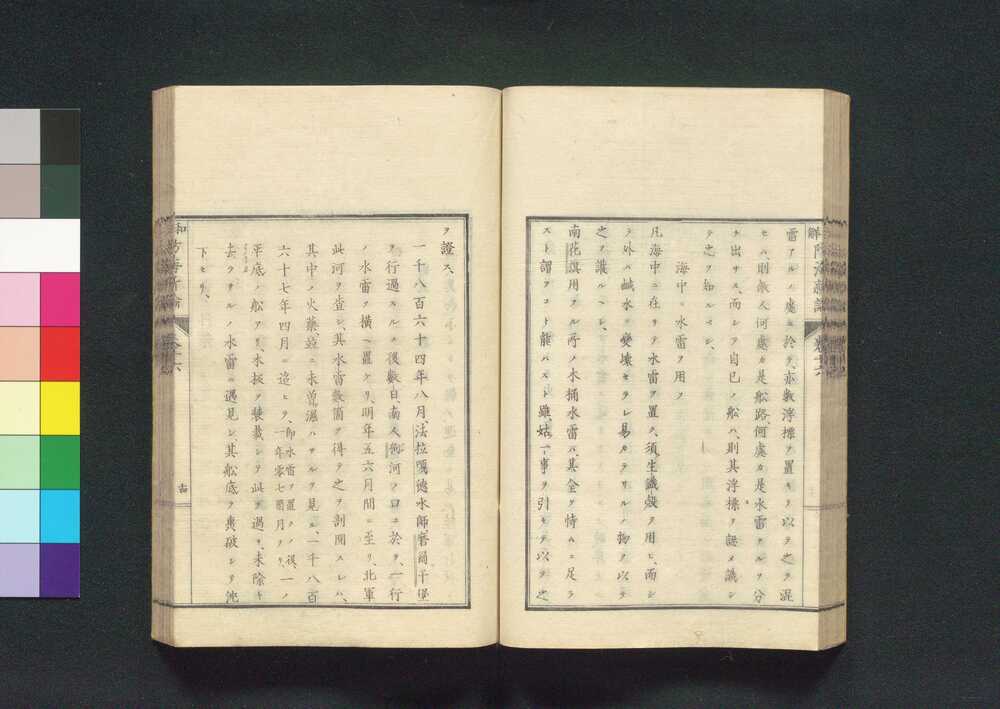 雷アルノ處ニ於テ、亦數浮標ヲ置キテ以テ之ヲ混
セハ、則敵人何處カ是船路、何處カ是水雷タルヲ分
チ出サス、而シテ自已ノ船ハ、則其浮標ヲ認メ識シ
テ之ヲ知ルベシ、
海中ニ水雷ヲ用フ
凡海中ニ在リテ水雷ヲ置ク、須生鐵殼ヲ用ヒ、而シ
テ外ハ鹹水ニ變壊セラレ易カラサルノ物ヲ以テ
之ヲ護ルベシ、
南花旗用フル所ノ木桶水雷ハ、其全ク恃ムニ足ラ
スト謂フコト能ハスト雖、姑一事ヲ引キテ以テ之
ヲ證ス、
一千八百六十四年八月、法拉嘎德水師、磨爾干堡
ヲ行過スルノ後數日、南人河ノ口ニ於テ、一行
ノ水雷ヲ橫ニ置ケリ、明年五六月間ニ至リ、北軍
此河ヲ査シ、其水雷數箇ヲ得テ之ヲ剖開スレハ、
其中ノ火藥、竝ニ未曽濕ハサルヲ見ル、一千八百
六十七年四月ニ迨ヒテ、即水雷ヲ置クノ後、一年零七箇月ナリ、一ノ
平底ノ船アリ、木板ヲ裝載シテ此ヲ過リ、未除キ
去ラサルノ水雷ニ遇見シ、其船底ヲ轟破シテ沈
下セリ、
解防海新論 卷十六
和防海新論 卷十六
十四